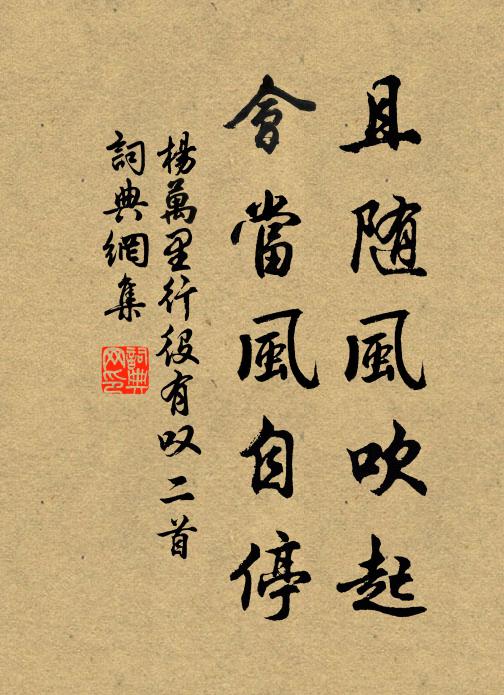 且随風吹起
會當風自停
楊萬里行役有叹二首
詞典網集
詞典網印